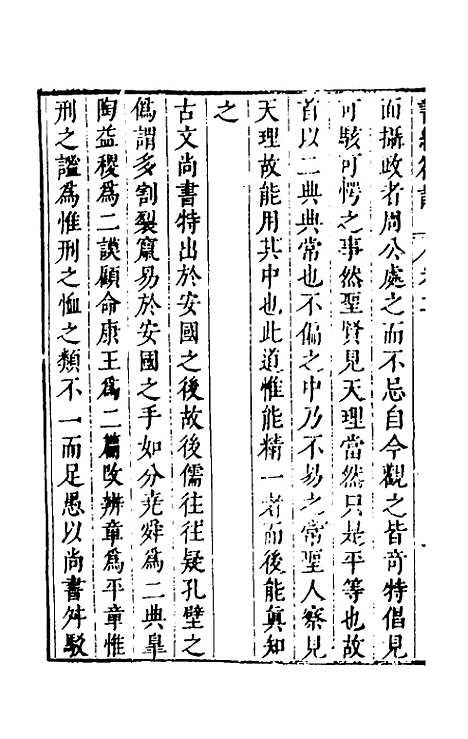 而攝政者周公處之而不忌自今觀之皆奇特倡見
可駭可愕之事然聖賢見天理當然只是平等也故
首以二典典常也不偏之中乃不易之常聖人察見
天理故能用其中也此道惟能精一者而後能眞知
之
古文尚書特出於安國之後故後儒往往疑孔壁之
僞謂多割裂竄易於安國之手如分堯舜爲二典皐
陶益稷爲二謨顧命康王爲二篇改辨章爲平章惟
刑之謐爲惟刑之恤之類不一而足愚以尚書舛駁